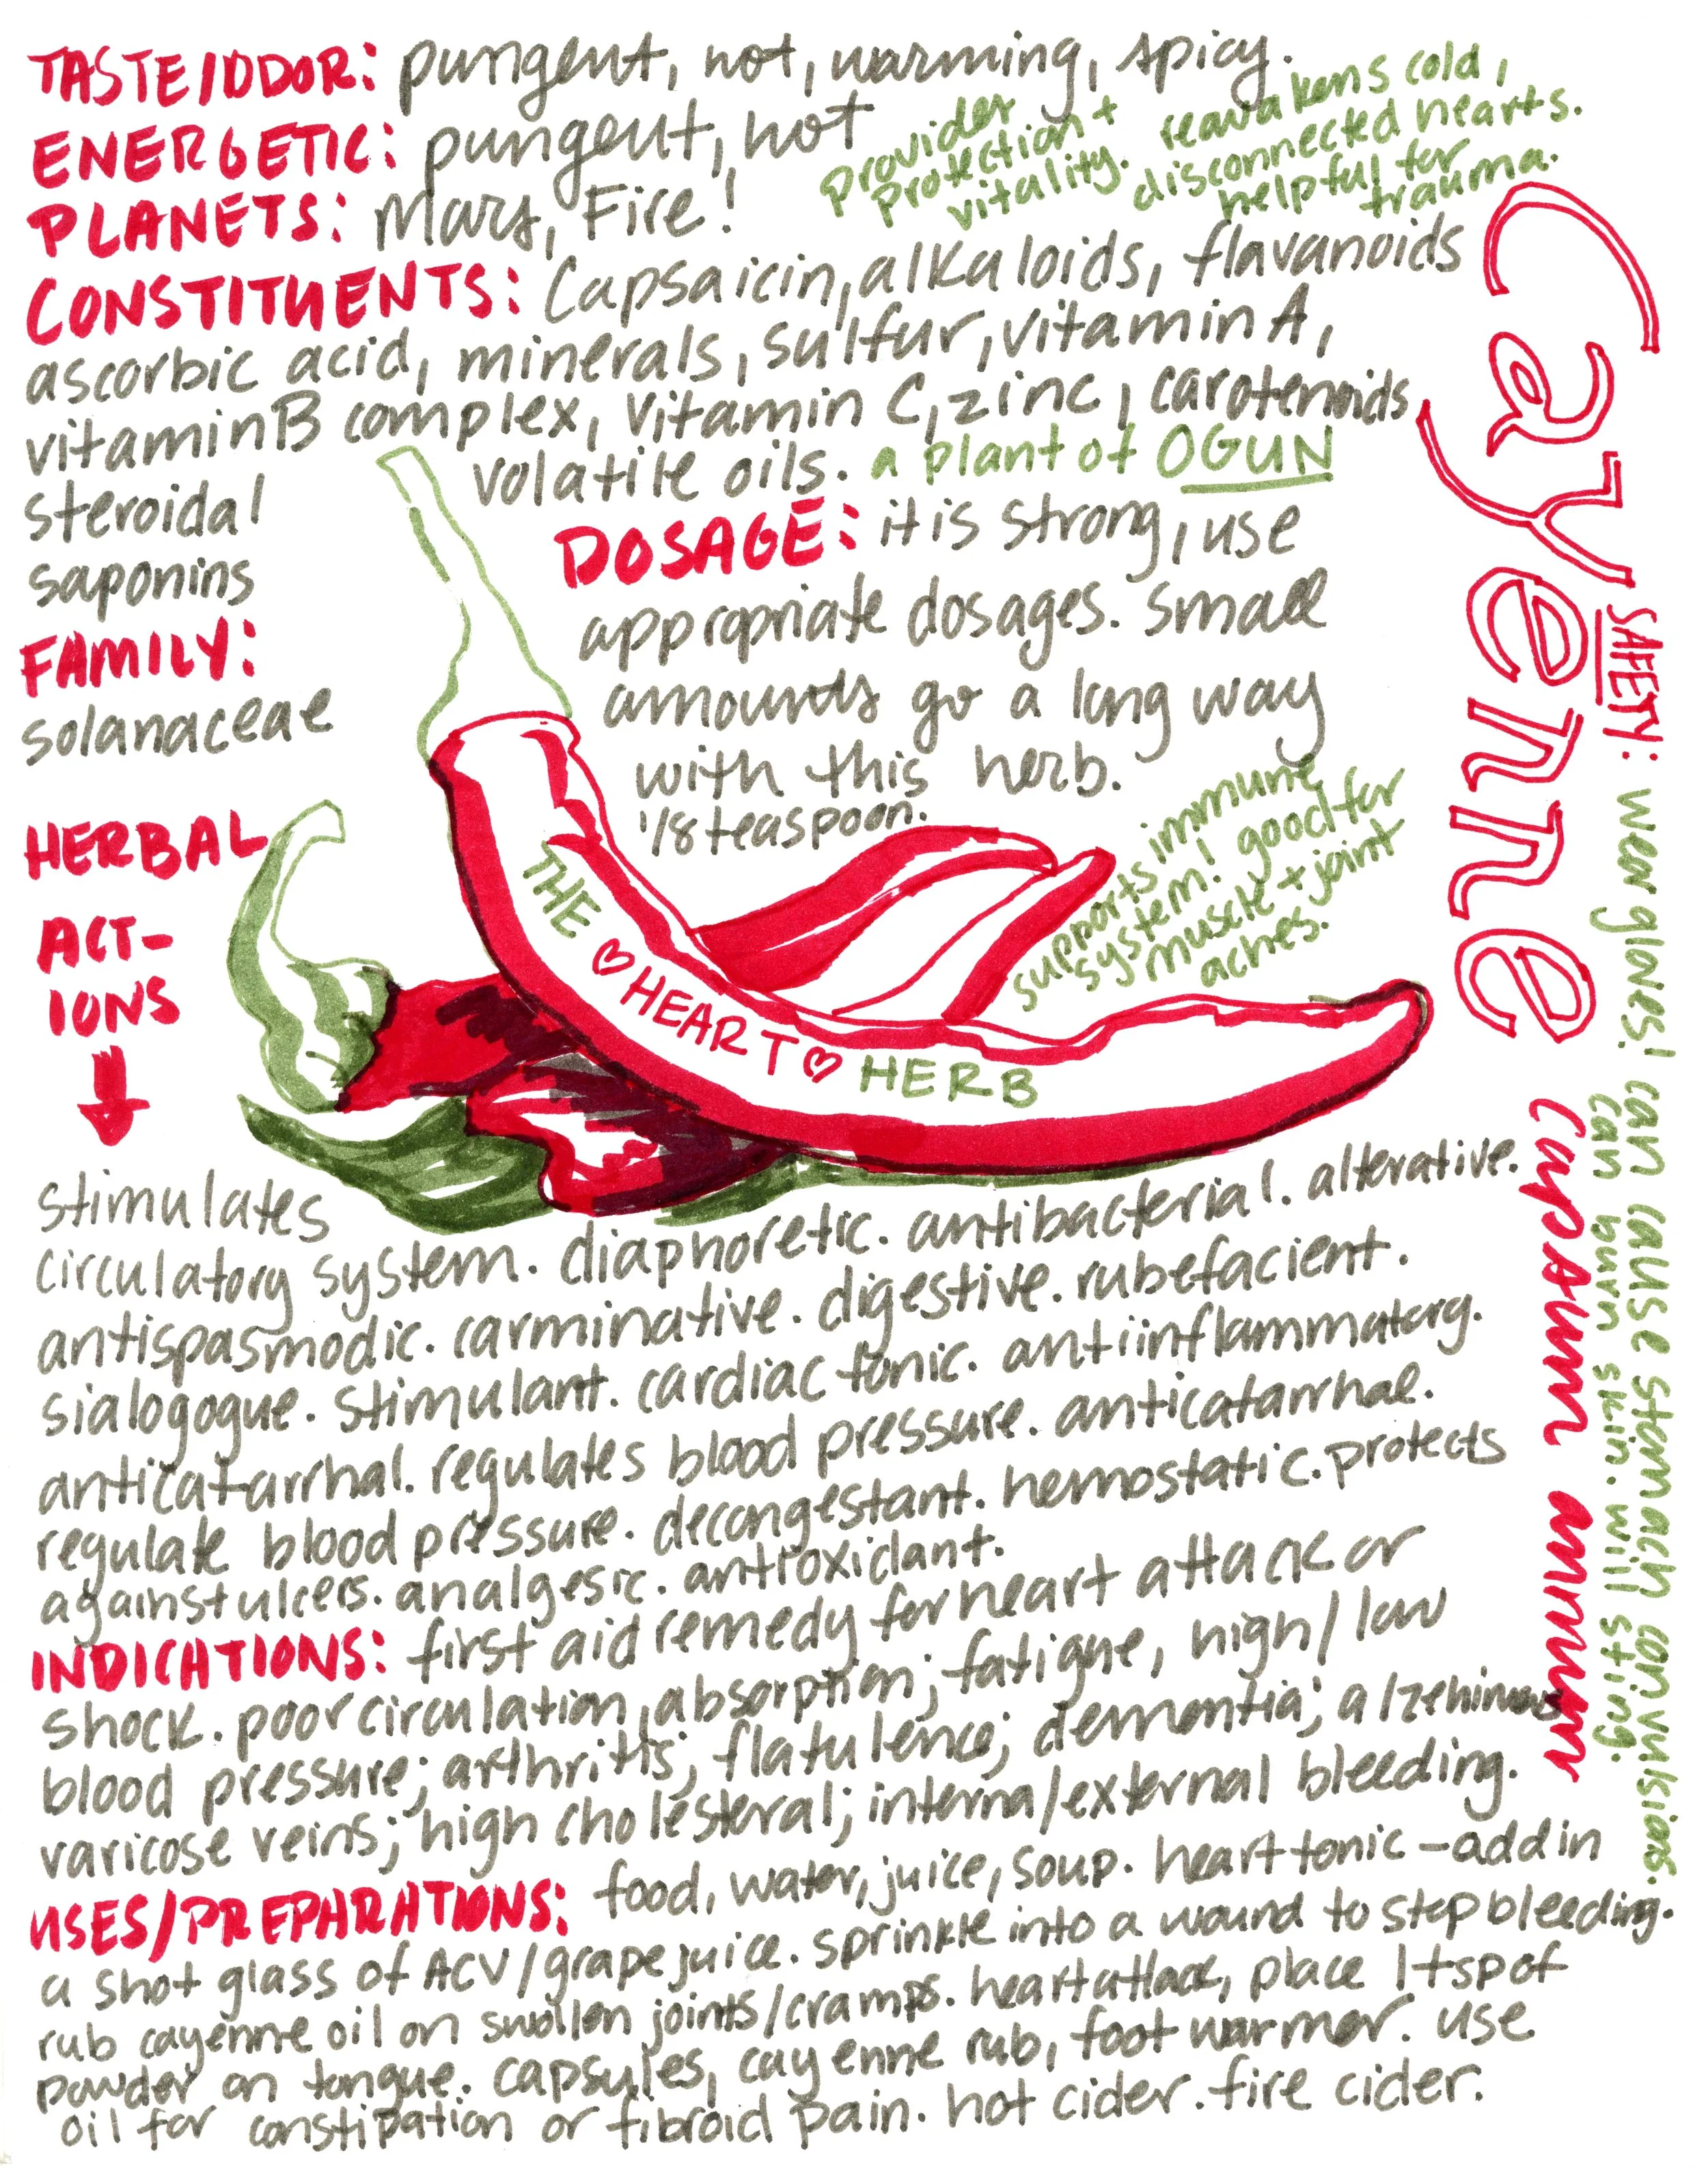 TASTE/ODOR: pungent, hot, warming, spicy.
ENERGETIC: pungent, hot
PLANETS: Mars, Fire!
provider
protection +
vitality.
reawakens cold,
disconnected hearts.
helpful for
trauma.
CONSTITUENTS: Capsaicin, alkaloids, flavanoids
ascorbic acid, minerals, sulfur, vitamin A,
vitamin B complex, Vitamin C, zinc, carotenoids,
steroidal
saponins
volatile oils. a plant of OGUN
FAMILY:
solanaceae
DOSAGE: it is strong, use
appropriate dosages. Small
amounts go a long way
with this herb.
1/8 teaspoon.
supports immune
system! good for
muscle + joint
aches.
THE ♡ HEART ♡ HERB
Cayenne
capsicum annum
SAFETY: wear gloves! can cause stomach convulsions.
can burn skin. will sting.
HERBAL
ACT-
IONS
stimulates
circulatory system. diaphoretic. antibacterial. alterative.
antispasmodic. carminative. digestive. rubefacient.
sialogogue. stimulant. cardiac tonic. antiinflammatory.
anticatarrhal. regulates blood pressure. anticatarrhal.
regulate blood pressure. decongestant. hemostatic. protects
against ulcers. analgesic. antioxidant.
INDICATIONS: first aid remedy for heart attack or
shock. poor circulation, absorption; fatigue, high/low
blood pressure; arthritis; flatulence; dementia; alzehimers
varicose veins; high cholesteral; internal/external bleeding.
USES/PREPARATIONS: food, water, juice, soup. heart tonic - add in
a shot glass of ACV/grape juice. sprinkle into a wound to stop bleeding.
rub cayenne oil on swollen joints/cramps. heart attack, place 1 tsp of
powder on tongue. capsules, cayenne rub, foot warmer. use
oil for constipation or fibroid pain. hot cider. fire cider.